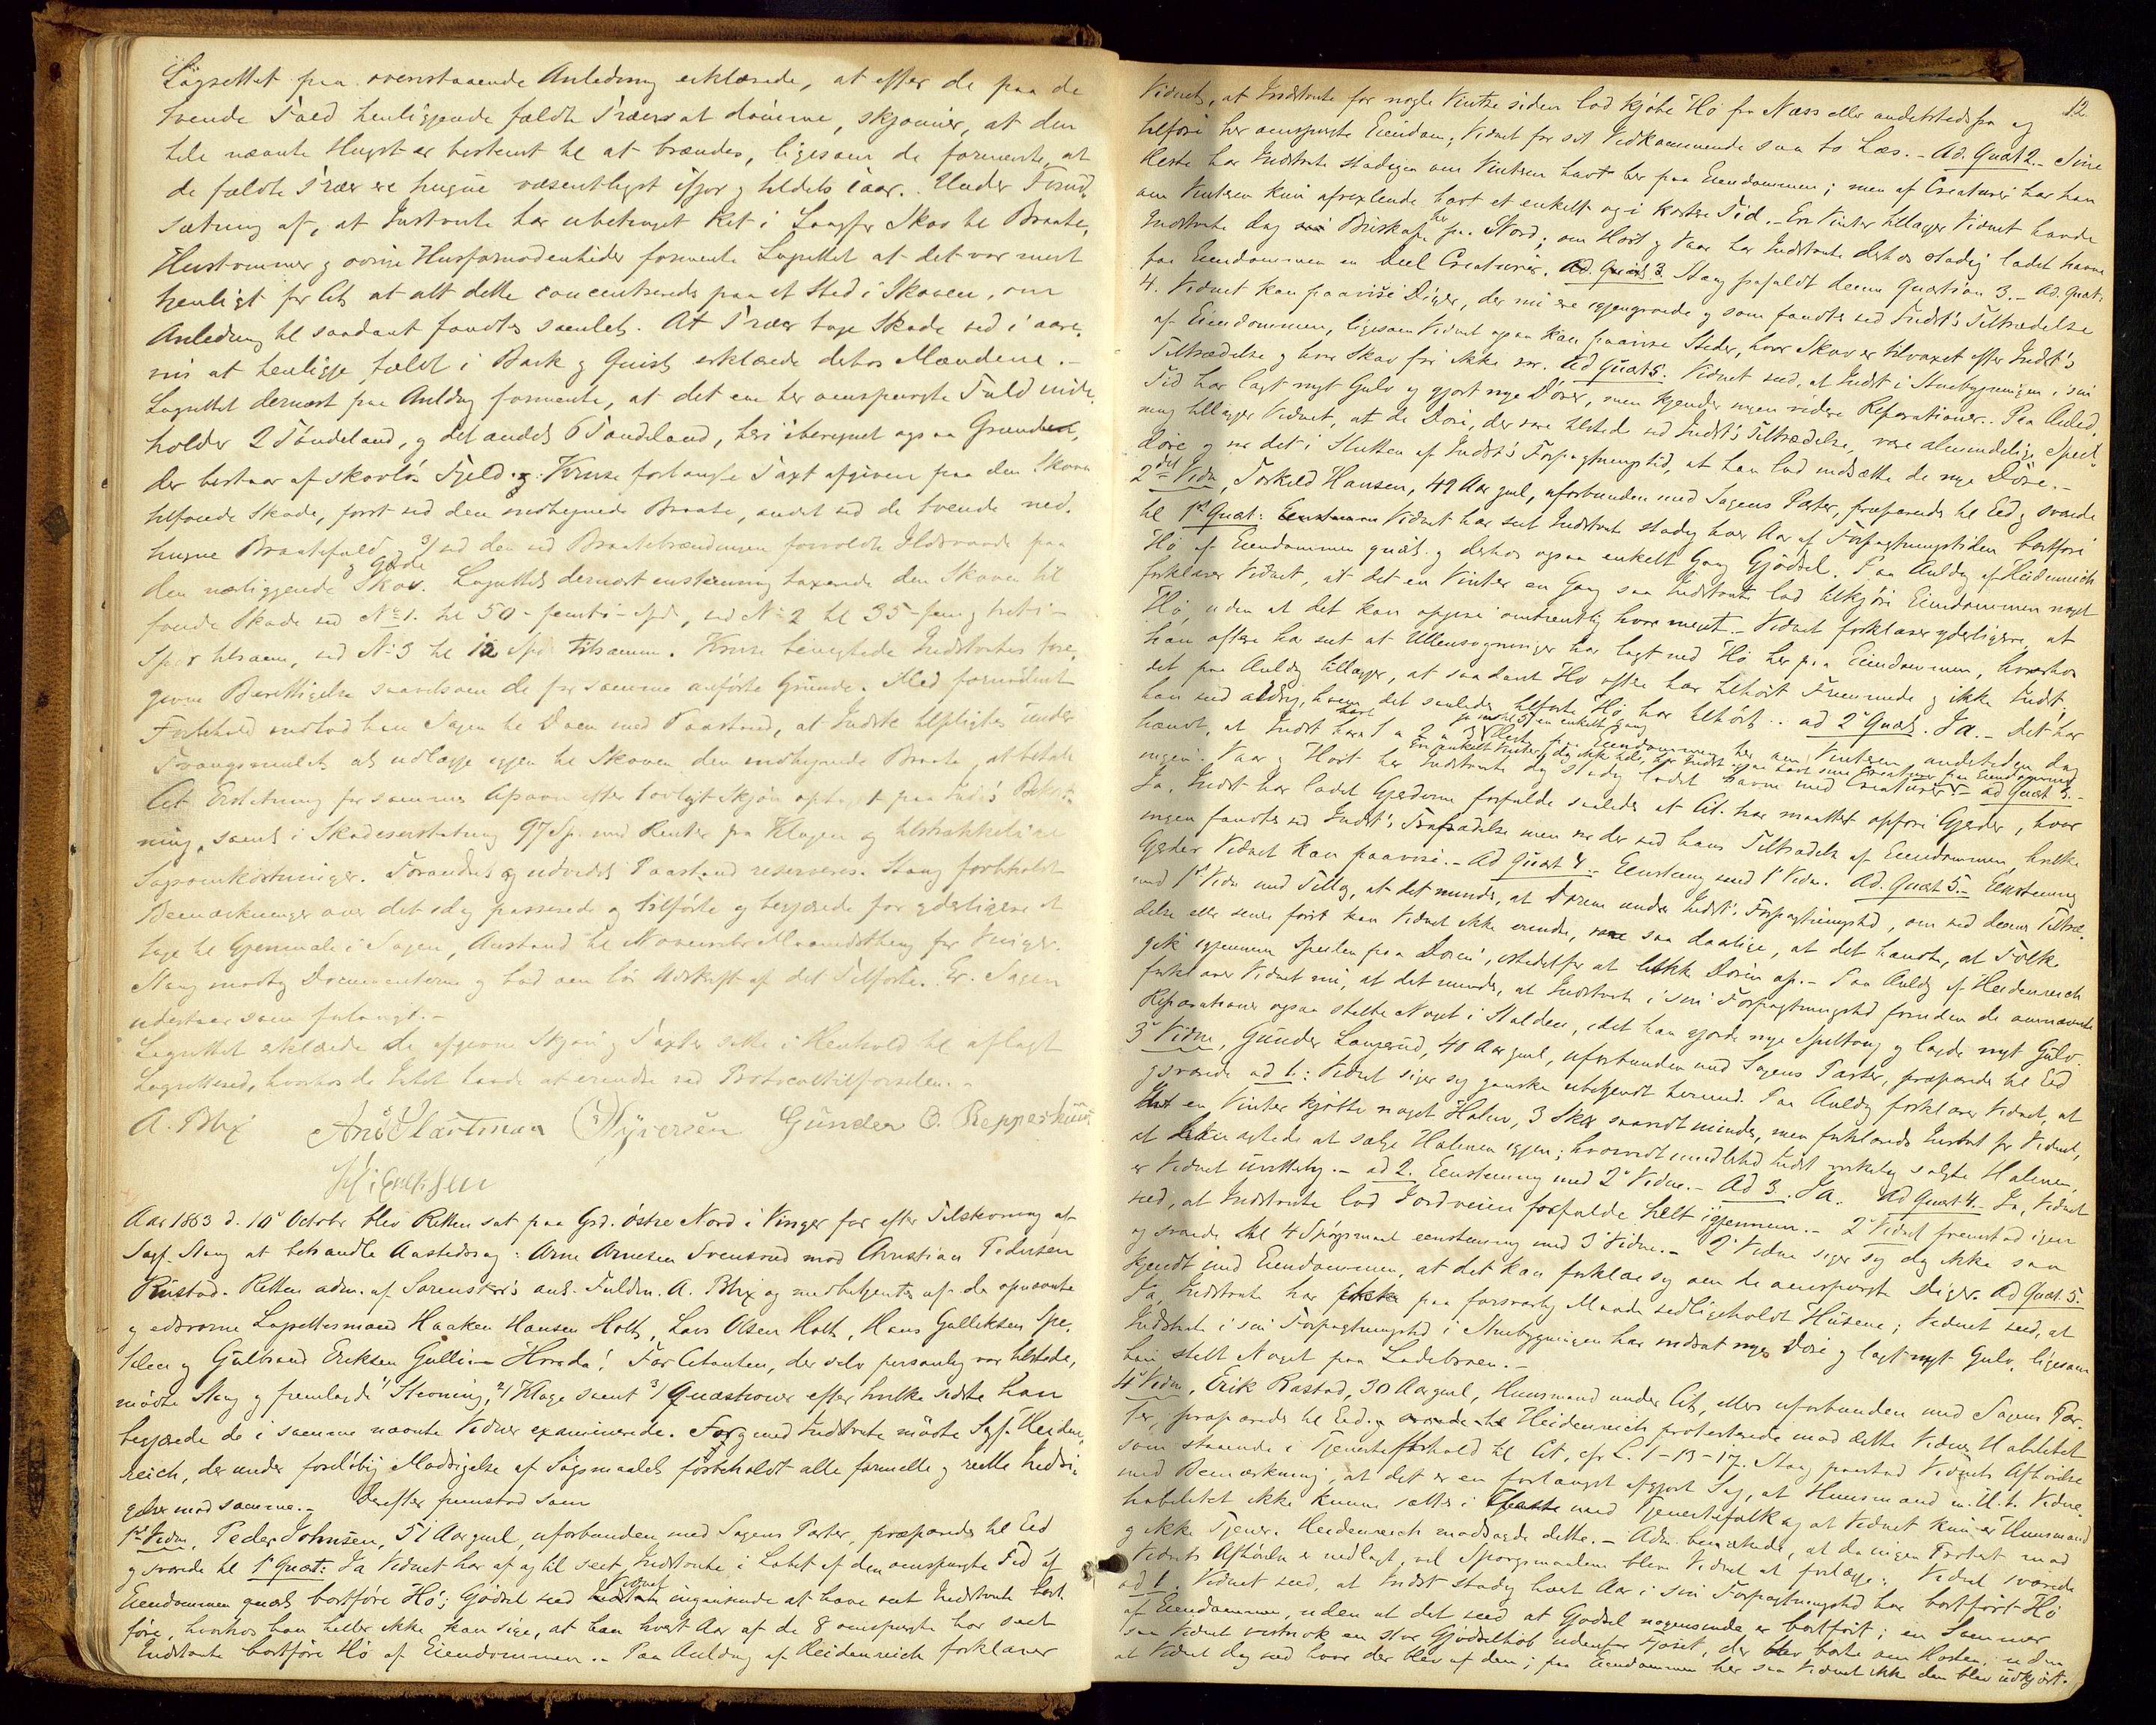 Lagrettet paa ovenstaaende Anledning erklærede, at efter de paa de
tvende Fald henliggende fældte Træer at dömme, skjönner, at den
hele nævnte Hugst er bestemt til at brændes, ligesom de formente, at
de fældte Træer ere hugne væsentligst ifjor og tildels iaar. Under Forud-
sætning af, at Indstevnte har ubetinget Ret i Skov til Braate,
Hustömmer og övrige Husfornödenheder formente Lagrettet at det var mest
tjenligt for Cit. at alt dette concentreredes paa et Sted i Skoven, om
Anledning til saadant fandtes samlet. At Træer tage Skade ved i aare-
vis at henligge fældt i Bark og Qvist erklærede derhos Mændene.-
Lagrettet dernæst paa Anledng formente, at det ene her omspurgte Fald inde-
holder 2 Töndeland, og det andet 6 Töndeland, heri iberegnet ogsaa Grund,
der bestaar af skovlös Fjeld. Kruse forlangte Taxt afgiven paa den Skoven
tilföiede Skade, först ved den indhegnede Braate, andet ved de tvende ned-
hugne Braatefald og 3/ ved den ved Braatebrændingen forvoldte Ildsvaade paa
den næstliggende Skov og Gjærde. Lagrettet dernæst enstemmig taxerede den Skoven til-
föiede Skade ved No 1. til 50 - femti - Spd, ved No 2 til 35 - fem og treti -
Spdr tilsam, ved No 3 til 12 Spd tilsamm. Kruse benegtede Indstevntes fore-
givne Berettigelse saavelsom de for samme anförte Grunde. Med fornödent
Forbehold indlod han Sagen til Dom med Paastand, at Indst. tilpligtes under
Tvangsmulct at udlægge igjen til Skoven den indhegnede Braate, at betale
Cit. Erstatning for sammes Afsavn efter lovligt Skjön optaget paa Inds's Bekost-
ning, samt i Skadeserstatning 97 Sp. med Renter fra Klagen og tilstrækkelige
Sagsomkostninger. Forandret og udvidet Paastand reserveres. Stang forbeholdt
Bemærkninger over det idag passerede og tilförte og begjærede for yderligere at
tage til Gjenmæle i Sagen, Anstand til November Maanedsthing for Vinger.
Stang modtog Documenterne og bad om lös Udskrift af det Tilförte. Er. Sagen
udestaar som forlangt.-
Lagrettet erklærede de afgivne Skjön og Taxter skete i Henhold til aflagt
Lagrettesed, hvorhos de Intet havde at erindre ved Protocoltilförselen.-
A. Blix Gunder O. Repperskuus

Aar 1863 d. 10de October blev Retten sat paa Grd. östre Nord i Vinger for efter Tilskrivning af
Sagf. Stang at behandle Aastedssag: Arne Arnesen Svensrud mod Christian Pedersen
Rustad. Retten adm. af Sorenskr's aut. Fuldm. A. Blix og medbetjentes af de opnævnte
og edsvorne Lagrettesmænd Haaken Hansen Holt, Lars Olsen Holt, Hans Gulliksen Spe-
og Gulbrand Eriksen Gulli- . For Citanten, der selv personlig var tilstede,
mödte Stang og fremlagde 1/ Stevning, 2/ Klage samt 3/ Quæstioner efter hvilke sidste han
begjærede de i samme nævnte Vidner examinerede. For og med Indstevnte mödte Sagf. Heiden-
reich, der under foreløbig Modsigelse af Sögsmaalet forbeholdt alle formelle og reelle Indsi-
gelser mod samme.- Derefter fremstod som
1ste Vidne, Peder Johnsen, 51 Aar gml, uforbunden med Sagens Parter, præparedes til Ed
og svarede til 1ste Quæst: Ja Vidnet har af og til seet Indstevnte i Löbet af den omspurgte Tid af
Eiendommen quæst. bortföre Hö; Gjödsel veed Vidnet ingensinde at have seet Indstevnte bort-
före, hvorhos han heller ikke kan sige, at han hvert Aar af de 8 omspurgte har seet
Indstevnte bortföre Hö af Eiendommen.- Paa Anldng af Heidenreich forklarer

12.
Vidnet, at Indstevnte for nogle Vintre siden lod kjöbe Hö fra Næss eller andetstedsfra og
tilföre her omspurgte Eiendom; Vidnet for sit Vedkommende saa to Læs.- Ad. Quæst 2.- Sine
Heste har Indstevnte stadigen om Vinteren havt her paa Eiendommen; men af Creaturer har han
om Vinteren kun afvexlende havt et enkelt og i kortere Tid.- En Vinter tillægger Vidnet havde
Indstevnte dog Buskap her paa Nord; om Höst og Vaar har Indstevnte derhos stadig ladet havne
paa Eiendommen en Deel Creaturer. Ad. Quæst 3. Stang frafaldt denne Quæstion 3.- Ad. Quæst
4. Vidnet kan paavise Diger, der nu ere igjengroede og som fandtes ved Indst's Tiltrædelse
af Eiendommen, ligesom Vidnet ogsaa kan paavise Steder, hvor Skov er tilvoxet efter Indst's
Tiltrædelse og hvor Skov för ikke var. Ad Quæst 5: Vidnet veed, at Indst i Stuebygningen i sin
Tid har lagt nyt Gulv og gjort nye Döre, men kjender ingen videre Reparationer.. Paa Anled-
ning tillægger Vidnet, at de Döre, der vare tilstede ved Indst's Tiltrædelse, vare almindelige Speil-
döre og var det i Slutten af Indst's Forpagtningstid, at han lod indsætte de nye Döre.-
2det Vidne, Torkild Hansen, 49 Aar gml, uforbunden med Sagens Parter, præparedes til Ed og svarede
til 1ste Quæst: Vidnet har seet Indstevnte stadig hver Aar af Forpagtningstiden bortföre
Hö af Eiendommen quæst. og derhos ogsaa enkelt Gang Gjödsel. Paa Anldg af Heidenreich
forklarer Vidnet, at det en Vinter en Gang saa Indstevnte lod tilkjöre Eiendommen noget
Hö, uden at det kan opgive omtrentlig hvor meget.- Vidnet forklarer yderligere, at
han oftere har seet at Ullensogninger har lagt ned Hö her paa Eiendommen, hvorhos
det paa Anldg tillægger, at saadant Hö ofte har tilhört Fremmede og ikke Indst;
han veed aldrig, hvem det saaledes tilförte Hö har tilhört.. ad 2det Quæst. Ja.- Det har
hændt, at Indst havt 1 a 2 a 3 Heste paa Eiendommen her om Vinteren, undertiden dog
ingen. Vaar og Höst har Indstevnte dog stadig ladet havne med Creaturer.- ad Quæst 3.-
Ja, Indst har ladet Gjærderne forfalde saaledes at Cit. har maattet opföre Gjærder, hvor
ingen fandtes ved Indst's Fratrædelse men var der ved hans Tiltrædelse af Eiendommen, hvilke
Gjærder Vidnet kan paavise.- Ad Quæst 4.- Eenstemg med 1ste Vidne. Ad. Quæst 5.- Eenstemmig
med 1ste Vidne med Tillæg, at det mindes, at Dörene under Indst's Forpagtningstid, om ved dennes Tiltræ-
delse eller senere först kan Vidnet ikke erindre, vare saa daarlige, at det hændte, at Folk
gik igjennem Speilen paa Dören, istedetfor at lukke Dören op.- Paa Anldg af Heidenreich
forklarer Vidnet nu, at det mindes, at Indstevnte i sin Forpagtningstid foruden de omnævnte
Reparationer ogsaa stelte Noget i Stalden, idet han gjorde nye Spiltoug og lagde nyt Gulv.
3die Vidne, Gunder Langerud, 40 Aar gml, uforbunden med Sagens Parter, præparedes til Ed
og svarede ad 1.: Vidnet siger sig ganske ubekjendt hermed. Paa Anldg forklarer Vidnet, at
Indst en Vinter kjöbte noget Halm, 3 Skd saavidt mindes, men forklarede Indst for Vidnet,
at han agtede at sælge Halmen igjen; hvorvidt imidlertid Indst virkelig solgte Halmen,
er Vidnet uvitterlig.- ad 2. Eenstemmig med 2det Vidne.- Ad 3. Ja. Ad Quæst 4.- Ja, Vidnet
veed, at Indstevnte lod Jordveien forfalde helt igjennem.- 2det Vidnet fremstod igjen
og svarede til 4 Spørgsmaal eenstemmig med 3die Vidne.- 2det Vidne siger sig dog ikke saa
kjendt med Eiendommen, at det kan forklare sig om de omspurgte Diger. Ad Quæst. 5.-
Ja, Indstevnte har paa forsvarlig Maade vedligeholdt Husene; Vidnet veed, at
Indstevnte i sin Forpagtningstid i Stuebygningen har indsat nye Döre og lagt nyt Gulv, ligesom
han stelt Noget paa Ladebroen.-
4de Vidne, Erik Rastad, 30 Aar gml, Huusmand under Cit, ellers uforbunden med Sagens Par-
ter, præparedes til Ed. Heidenreich protesterede mod dette Vidnes Habilitet
som staaende i Tjenesteforhold til Cit, cfr. L. 1-13-17. Stang paastod Vidnets Afhörelse
med Bemærkning, at det er en forlængst afgjort Sag, at Huusmænd m. H. t. Vidne-
habilitet ikke kunne sættes i Classe med Tjenestefolk og at Vidnet kun er Huusmand
og ikke Tjener. Heidenreich modsagde dette.- Adm. bemærkede, at da ingen Protest mod
Vidnets Afhörelse er nedlagt, vil Spörgsmaalene blive Vidnet at forlægge. Vidnet svarede
ad 1. Vidnet veed, at Indst stadig hvert Aar i sin Forpagtningstid har bortfört Hö
af Eiendommen, uden at det veed at Gjödsel nogensinde er bortfört; en Sommer
saa Vidnet vistnok en stor Gjödselhob udenfor Fjöset, der blev borte om Hösten, uden
at Vidnet dog veed hvor der blev af den; paa Eiendommen her saa Vidnet ikke den blev udkjört.